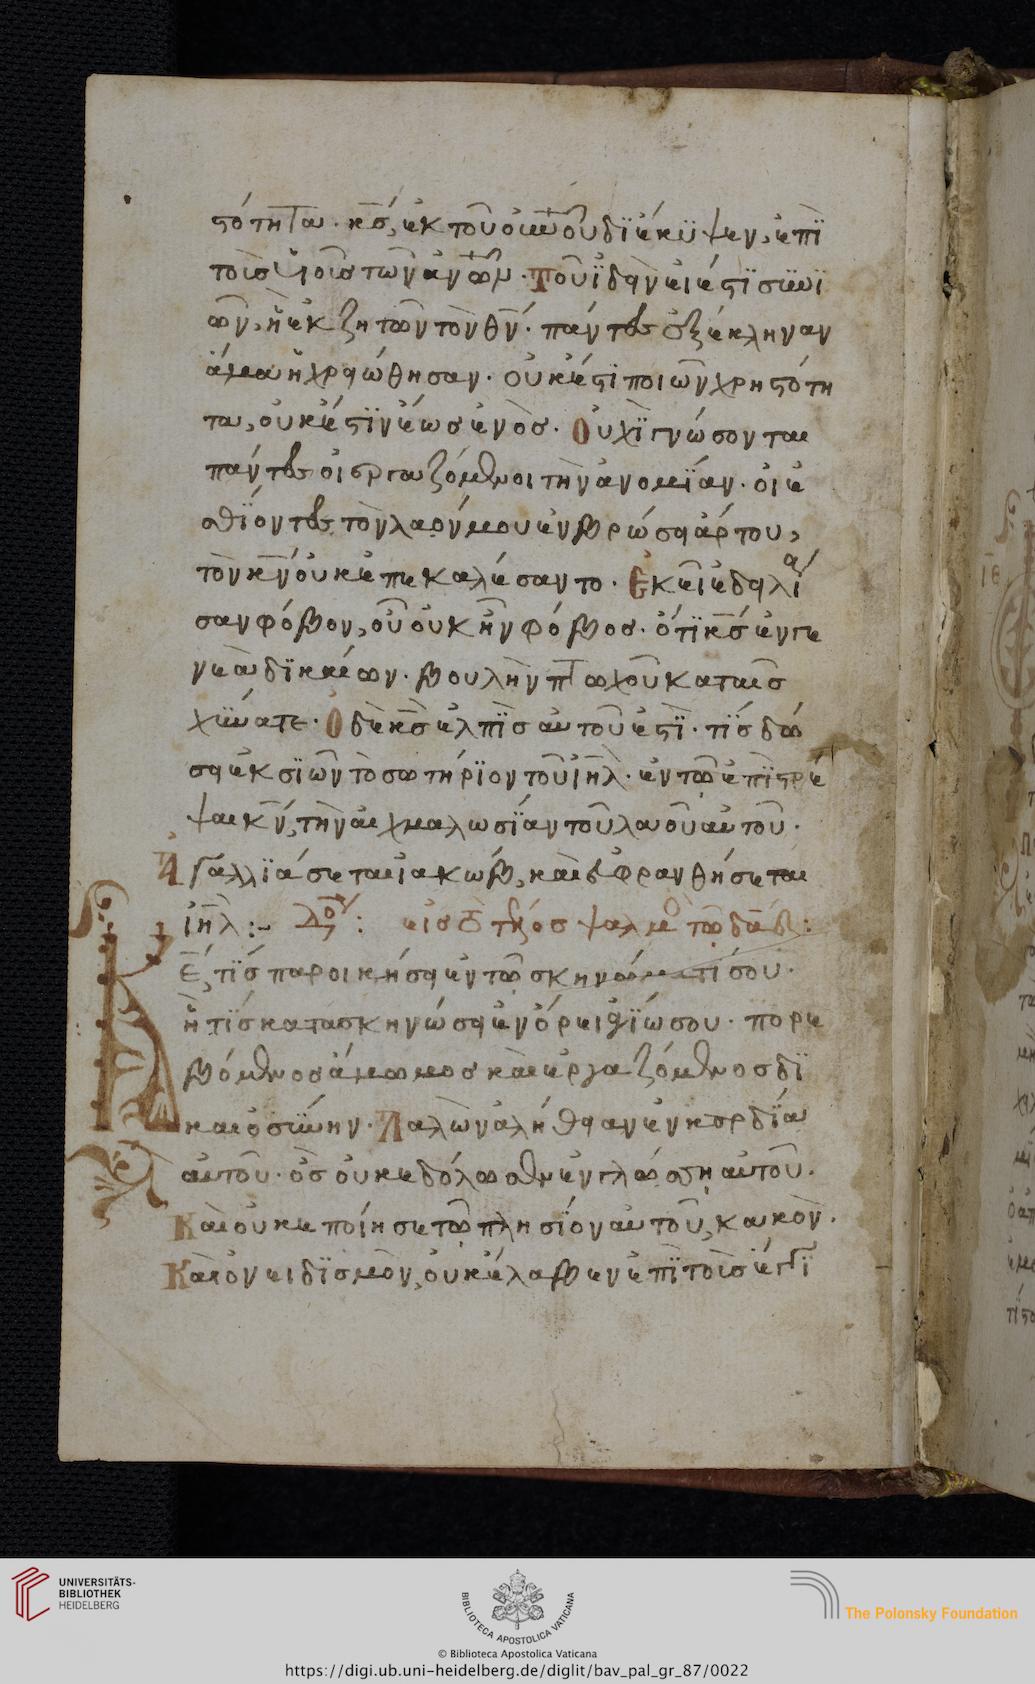 ςότητα. κς, ἐκ τοῦ οὐνοῦ διέκϋψεν, ἐπῒ
τοῖς υἱοῖς τῶν ἀνων. τοῦ ϊδεῖν εἰ ἔςϊ συνϊ
ῶν, ἢ ἐκζητῶν τὸν θν. πάντες ἐξέκληναν
ἅμα ἠχρειώθησαν. οὐκ ἔςϊ ποιῶν χρηςότη
τα, οὐκ ἔςϊν ἕως ἑνὸς. Οὐχῒ γνώσονται
πάντες οἱ εργαζόμενοι τὴν ἀνομΐαν. οἱ ἐ
σθΐοντες τὸν λαόν μου ἐν βρώσει ἄρτου,
τὸν κν οὐκ ἐπεκαλέσαντο. Ἐκεῖ ἐδειλί
ασαν φόβον, οὗ οὐκ ἦν φόβος. ὅτϊ κς ἐν γε
νεᾶ δϊκαίων. βουλὴν πτωχοῦ καταισ
χύνατε. Ὁ δὲ κς ἐλπῒς αυτοῦ ἐςϊ. τΐς δώ
σει ἐκ σϊὼν τὸ σωτήρϊον τοῦ ιηλ. ἐν τῶ ἐπϊςρέ
ψαι κν, τὴν αιχμαλωσΐαν τοῦ λαοῦ αυτοῦ.
Ἀγαλλϊάσεται ιακώβ, καὶ εὐφρανθήσεται
ιηλ:- ΙΔ: εἰς τὸ τέλος ψαλμὸς τῶ δαδ:
Κέ, τΐς παροικήσει ἐν τῶ σκηνώματί σου.
ἢ τΐς κατασκηνώσει ἐν ὄρει ἁγΐω σου. πορε
βόμενος ἄμωμος καὶ ἐργαζόμενος δϊ
καιοσύνην. Λαλὼν ἀλήθειαν ἐν καρδΐα
αυτοῦ. ὃς οὐκ ἐδόλωσεν ἐν γλώσση αυτοῦ.
Καὶ οὐκ ἐποίησε τῶ πλησΐον αυτοῦ, κακὸν.
Καὶ ὀνειδϊσμὸν, οὐκ ἔλαβεν ἐπῒ τοῖς ἔγγϊ
UNIVERSITÄTS-
BIBLIOTHEK
HEIDELBERG
BIBLIOTECA APOSTOLICA VATICANA
The Polonsky Foundation
© Biblioteca Apostolica Vaticana
https://digi.ub.uni-heidelberg.de/diglit/bav_pal_gr_87/0022